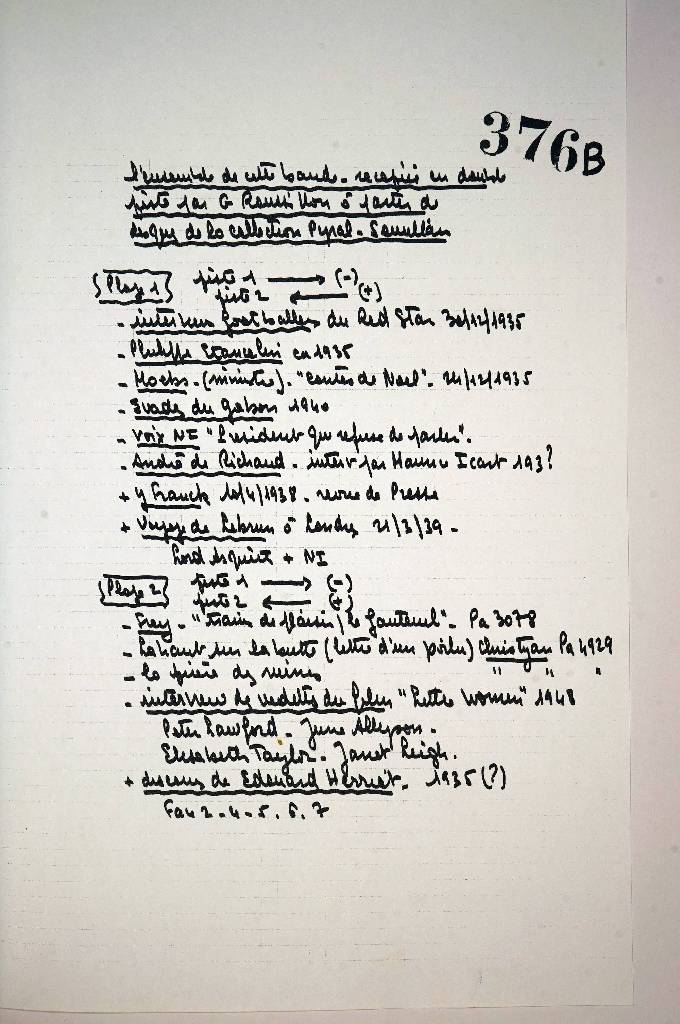 376B
L'ensemble de cette bande - recopiée en double
piste par G Roussillon à partir de
disques de la collection Pyral -
Plage 1 piste 1 → (-)
piste 2 ← (+)
- interview footballers du Red Star 30/12/1935
- Philippe en 1935
- (ministre). "contes de Noel". 24/12/1935
- Evadés du gabon 1940
- Voix NI "President qui refuse de parler".
- André de Richaud - interv par Maurice Icart 193?
+ Y Franck 10/4/1938 - revue de Presse
+ Voyage de Lebrun à Londres 21/3/39 -
Lord Asquith + NI
Plage 2 piste 1 → (-)
piste 2 ← (+)
- Frey - "train de plaisir / le fauteuil" - Pa 3078
- Lahaut sur la butte (lettre d'un poilu) Christyan Pa 4929
- la prière des ruines " " "
- interview de vedettes du film "Little Women" 1948
Peter Lawford - June Allyson -
Elisabeth Taylor - Janet Leigh.
+ discours de Edouard Herriot - 1935 (?)
Fau 2 - 4 - 5. 6. 7